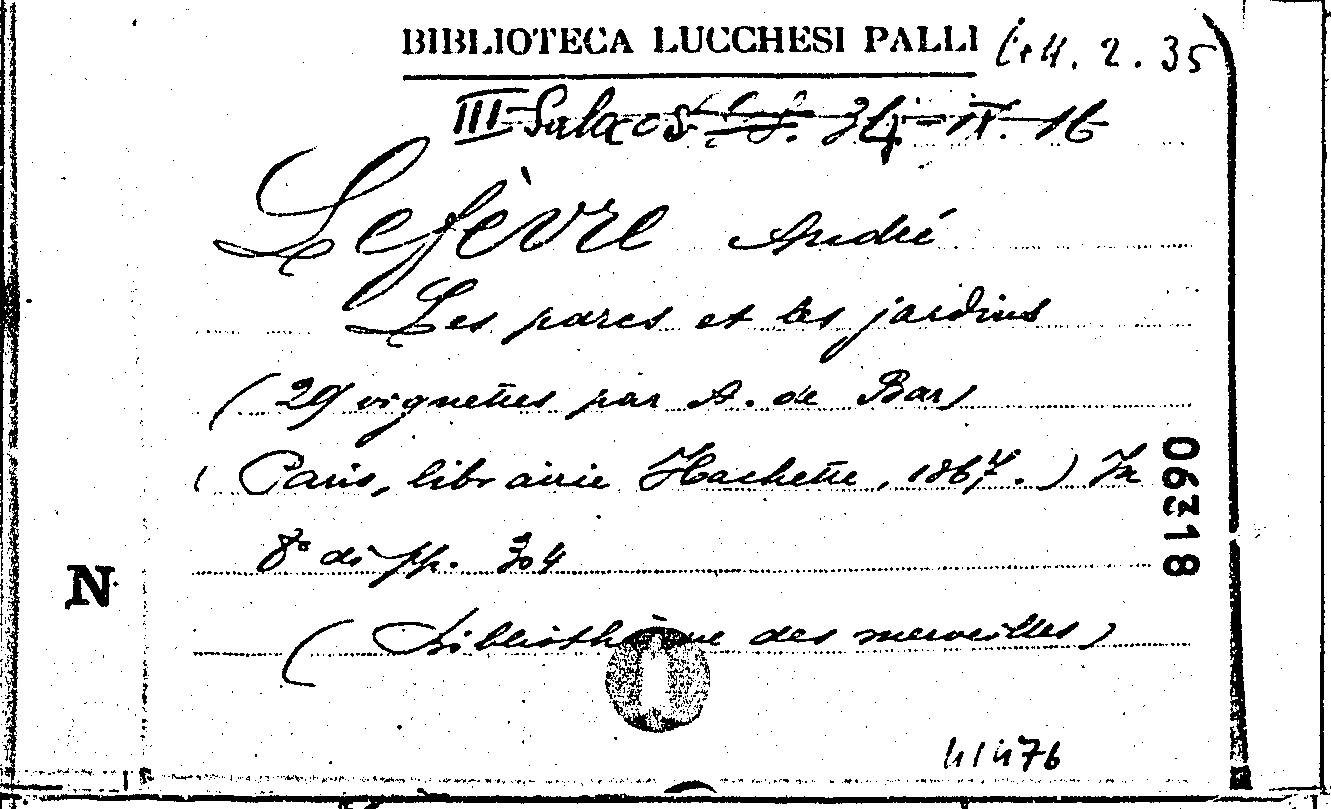 BIBLIOTECA LUCCHESI PALLI
4. 2. 35
III Sala
Lefèvre André
Les parcs et les jardins
(29 vignettes par A. de Bar)
(Paris, librairie Hachette, 1867.) In
8° di pp. 304
(Bibliothèque des merveilles)
N
06318
41476